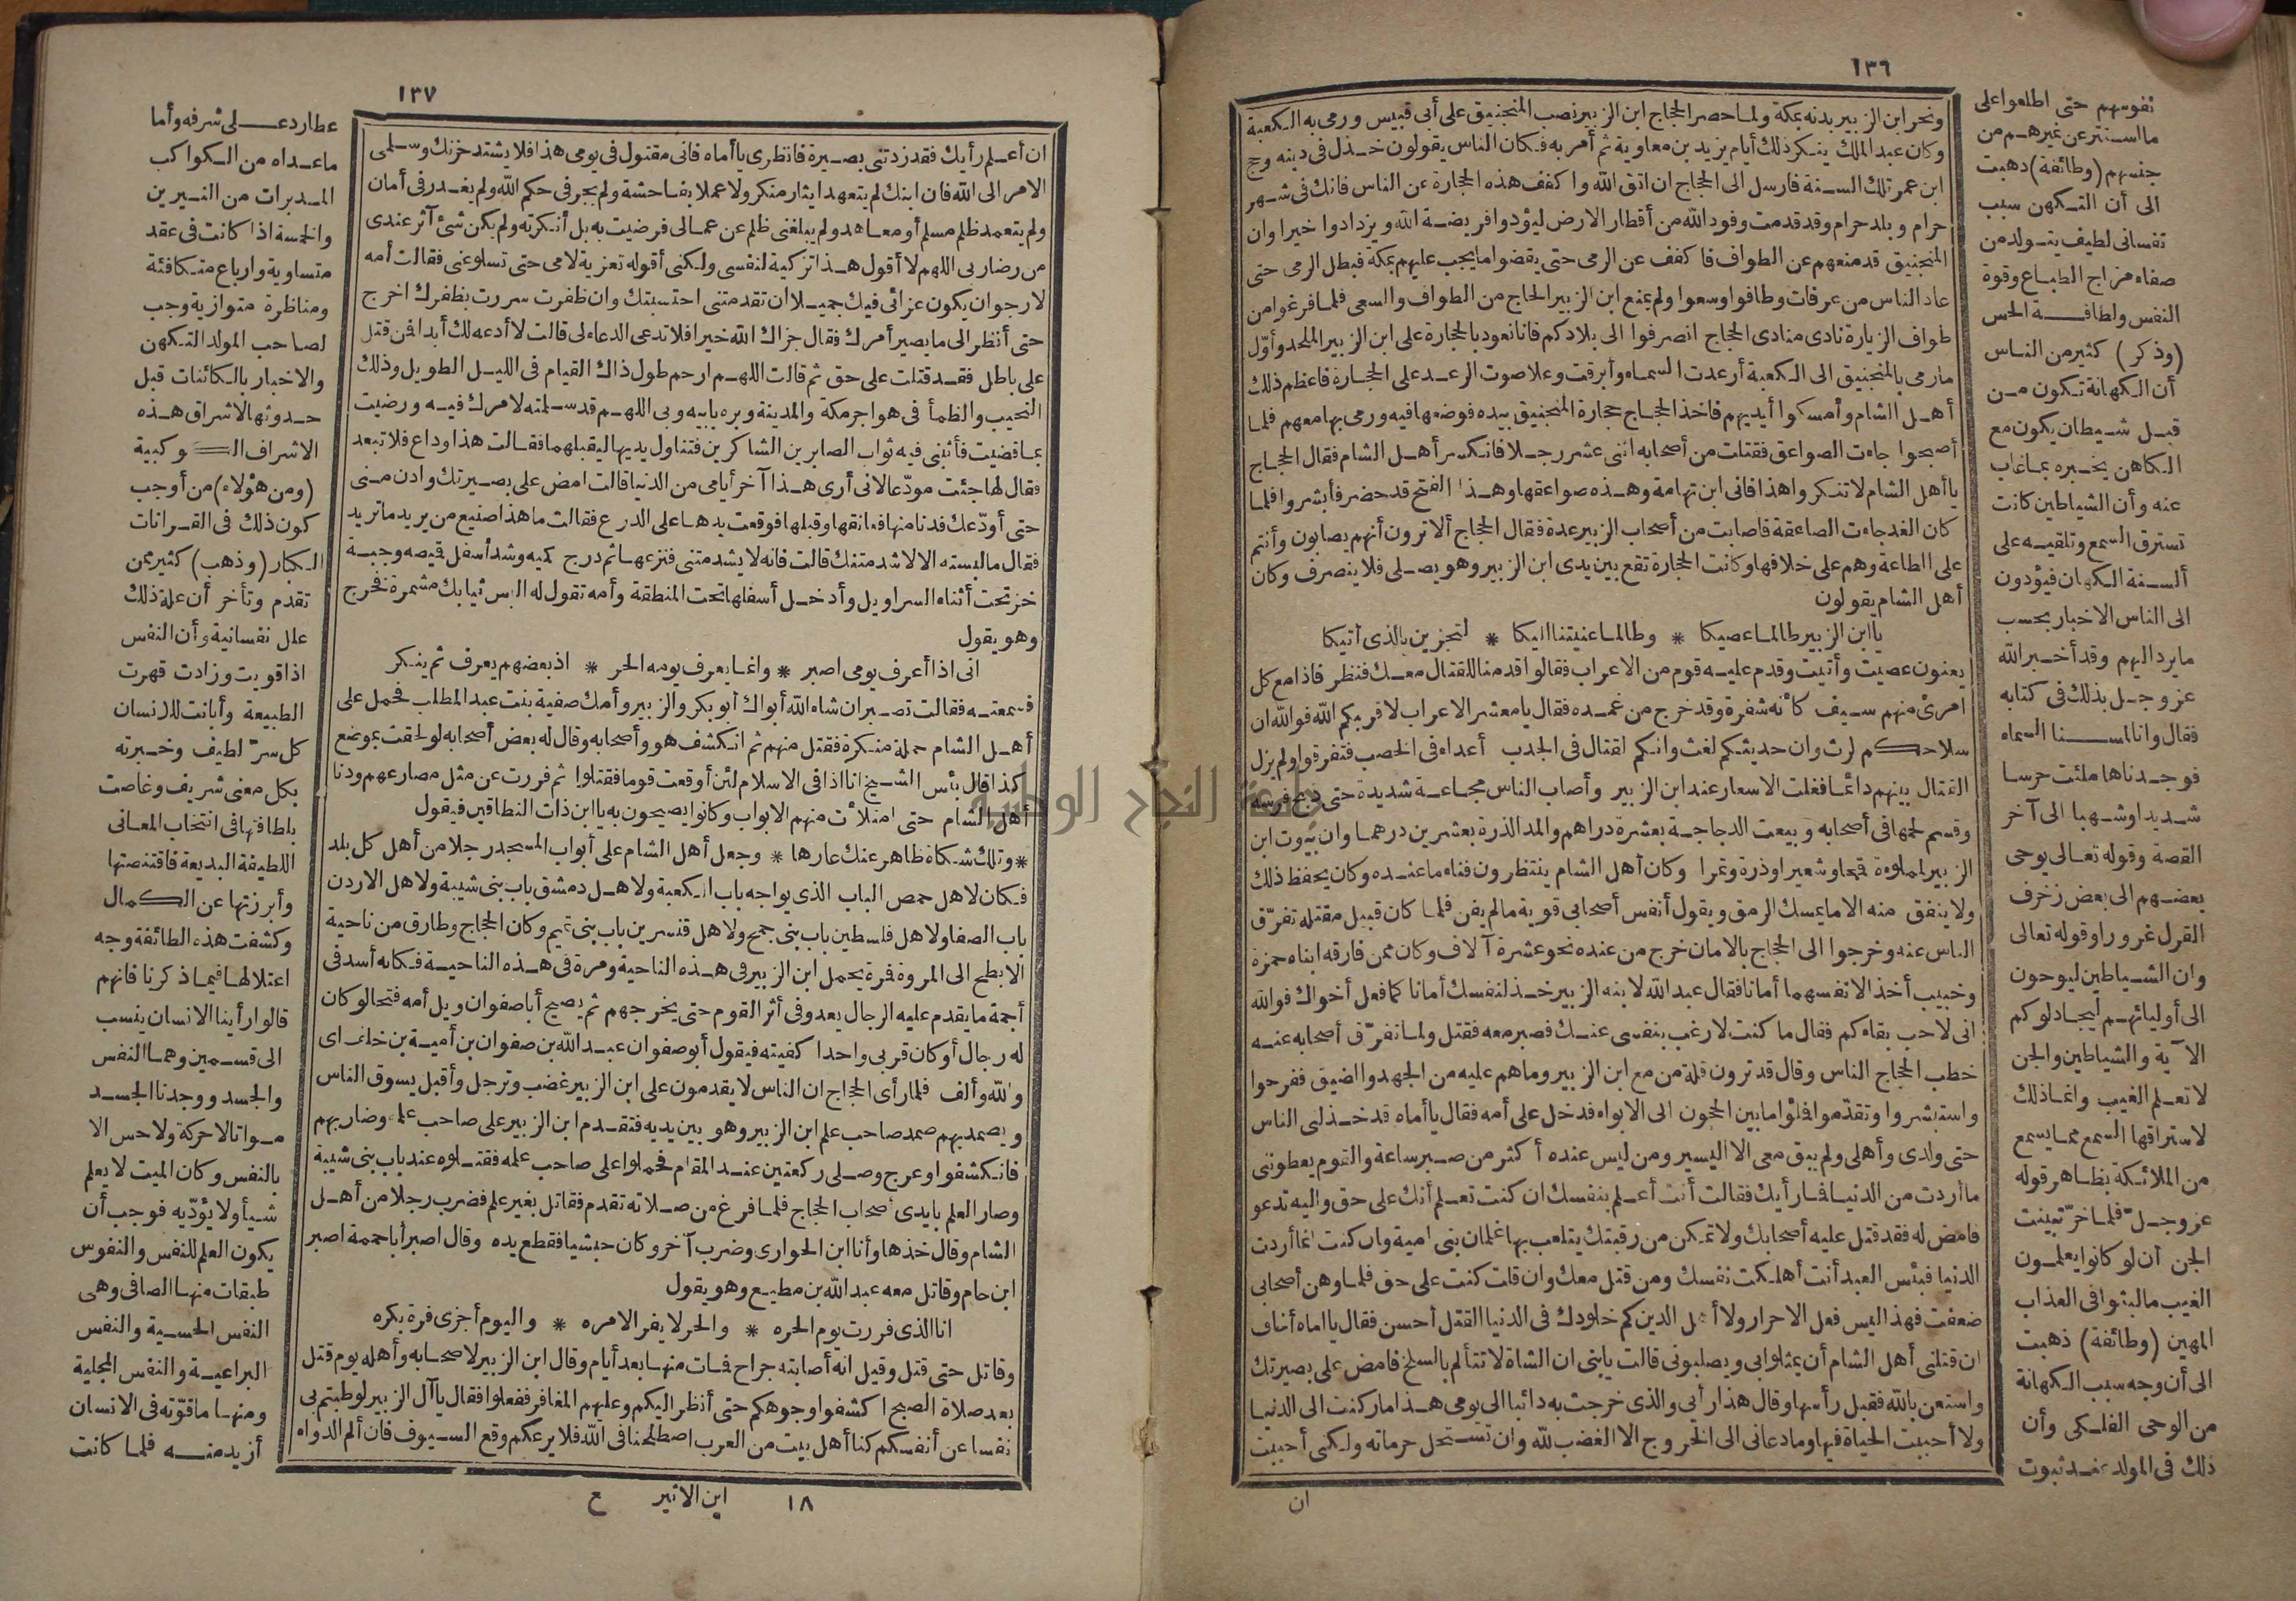 ١٣٦
ونحر ابن الزبير بدنه بمكة ولما حصر الحجاج ابن الزبير نصب المنجنيق على أبى قبيس ورمى به الكعبة
وكان عبد الملك ينكر ذلك أيام يزيد بن معاوية ثم أمر به فكان الناس يقولون خذل فى دينه وحج
ابن عمر تلك السنة فارسل الى الحجاج ان اتق الله واكفف هذه الحجارة عن الناس فانك فى شهر
حرام وبلد حرام وقد قدمت وفود الله من أقطار الارض ليؤدوا فريضة الله ويزدادوا خيرا وان
المنجنيق قد منعهم عن الطواف فاكفف عن الرمى حتى يقضوا ما يجب عليهم بمكة فبطل الرمى حتى
عاد الناس من عرفات وطافوا وسعوا ولم يمنع ابن الزبير الحاج من الطواف والسعى فلما فرغوا من
طواف الزيارة نادى منادى الحجاج انصرفوا الى بلادكم فانا نعود بالحجارة على ابن الزبير الملحد وأوّل
مارمى بالمنجنيق الى الكعبة أرعدت السماء وأبرقت وعلا صوت الرعد على الحجارة فاعظم ذلك
أهل الشام وأمسكوا أيديهم فاخذ الحجاج حجارة المنجنيق بيده فوضعها فيه ورمى بها معهم فلما
أصبحوا جاءت الصواعق فقتلت من أصحابه اثنى عشر رجلا فانكسر أهل الشام فقال الحجاج
ياأهل الشام لا تنكروا هذا فانى ابن تهامة وهذه صواعقها وهذا الفتح قد حضر فأبشروا فلما
كان الغد جاءت الصاعقة فاصابت من أصحاب الزبير عدة فقال الحجاج ألا ترون أنهم يصابون وأنتم
على الطاعة وهم على خلافها وكانت الحجارة تقع بين يدى ابن الزبير وهو يصلى فلا ينصرف وكان
أهل الشام يقولون
يا ابن الزبير طالما عصيكا * وطالما عنيتنا اليكا * لتجزين بالذى أتيكا
يعنون عصيت وأتيت وقدم عليه قوم من الاعراب فقالوا قدمنا للقتال معك فنظر فاذا مع كل
امرئ منهم سيف كأنه شفرة وقد خرج من غمده فقال يامعشر الاعراب لا قربكم الله فوالله ان
سلاحكم لرث وان حديثكم لغث وانكم لقتال فى الجدب أعداء فى الخصب فتفرقوا ولم يزل
القتال بينهم دائما فغلت الاسعار عند ابن الزبير وأصاب الناس مجاعة شديدة حتى ذبح فرسه
وقسم لحمها فى أصحابه وبيعت الدجاجة بعشرة دراهم والمد الذرة بعشرين درهما وان بيوت ابن
الزبير لمملوءة قمحا وشعيرا وذرة وتمرا وكان أهل الشام ينتظرون فناء ما عنده وكان يحفظ ذلك
ولا ينفق منه الا ما يمسك الرمق ويقول أنفس أصحابى قوية مالم يفن فلما كان قبيل مقتله تفرّق
الناس عنه وخرجوا الى الحجاج بالامان خرج من عنده نحو عشرة آلاف وكان ممن فارقه ابناه حمزة
وخبيب أخذ الانفسهما أمانا فقال عبد الله لابنه الزبير خذ لنفسك أمانا كما فعل أخواك فوالله
انى لاحب بقاءكم فقال ما كنت لارغب بنفسى عنك فصبر معه فقتل ولما تفرّق أصحابه عنه
خطب الحجاج الناس وقال قد ترون قلة من مع ابن الزبير وما هم عليه من الجهد والضيق ففرحوا
واستبشروا وتقدّموا فلؤا ما بين الحجون الى الابواء فدخل على أمه فقال ياأماه قد خذلنى الناس
حتى ولدى وأهلى ولم يبق معى الا اليسير ومن ليس عنده أكثر من صبر ساعة والقوم يعطونى
ماأردت من الدنيا فما رأيك فقالت أنت أعلم بنفسك ان كنت تعلم أنك على حق واليه تدعو
فامض له فقد قتل عليه أصحابك ولا تمكن من رقبتك يتلعب بها غلمان بنى امية وان كنت انما أردت
الدنيا فبئس العبد أنت أهلكت نفسك ومن قتل معك وان قلت كنت على حق فلما وهن أصحابى
ضعفت فهذا ليس فعل الاحرار ولا أهل الدين كم خلودك فى الدنيا القتل أحسن فقال يا اماه أخاف
ان قتلنى أهل الشام أن يمثلوا بى ويصلبونى قالت يابنى ان الشاة لا تتألم بالسلخ فامض على بصيرتك
واستعن بالله فقبل رأسها وقال هذا رأيى والذى خرجت به دائبا الى يومى هذا ما ركنت الى الدنيا
ولا أحببت الحياة فيها وما دعانى الى الخروج الا الغضب لله وان تستحل حرماته ولكنى أحببت
ان
نفوسهم حتى اطلعوا على
ما استتر عن غيرهم من
جنسهم (وطائفة) ذهبت
الى أن التكهن سبب
نفسانى لطيف يتولد من
صفاء مزاج الطباع وقوة
النفس ولطافة الحس
(وذكر) كثير من الناس
أن الكهانة تكون من
قبل شيطان يكون مع
الكاهن يخبره بما غاب
عنه وأن الشياطين كانت
تسترق السمع وتلقيه على
ألسنة الكهان فيؤدون
الى الناس الاخبار بحسب
ما يرد اليهم وقد أخبر الله
عز وجل بذلك فى كتابه
فقال وانا لمسنا السماء
فوجدناها ملئت حرسا
شديدا وشهبا الى آخر
القصة وقوله تعالى يوحى
بعضهم الى بعض زخرف
القول غرورا وقوله تعالى
وان الشياطين ليوحون
الى أوليائهم ليجادلوكم
الآية والشياطين والجن
لا تعلم الغيب وانما ذلك
لاستراقها السمع مما يسمع
من الملائكة بظاهر قوله
عز وجل فلما خرّ تبينت
الجن أن لو كانوا يعلمون
الغيب ما لبثوا فى العذاب
المهين (وطائفة) ذهبت
الى أن وجه سبب الكهانة
من الوحى الفلكى وأن
ذلك فى المولد عند ثبوت
١٣٧
ان أعلم رأيك فقد زدتنى بصيرة فانظرى ياأماه فانى مقتول فى يومى هذا فلا يشتد حزنك وسلمى
الامر الى الله فان ابنك لم يتعهد ايثار منكر ولا عملا بفاحشة ولم يجر فى حكم الله ولم يغدر فى أمان
ولم يتعمد ظلم مسلم أو معاهد ولم يبلغنى ظلم عن عمالى فرضيت به بل أنكرته ولم يكن شئ آثر عندى
من رضا ربى اللهم لا أقول هذا تزكية لنفسى ولكنى أقوله تعزية لامى حتى تسلو عنى فقالت أمه
لارجو ان يكون عزائى فيك جميلا ان تقدمتنى احتسبتك وان ظفرت سررت بظفرك اخرج
حتى أنظر الى ما يصير أمرك فقال جزاك الله خيرا فلا تدعى الدعاء لى قالت لا أدعه لك أبدا فمن قتل
على باطل فقد قتلت على حق ثم قالت اللهم ارحم طول ذاك القيام فى الليل الطويل وذلك
النحيب والظمأ فى هواجر مكة والمدينة وبره بابيه وبى اللهم قد سلمته لامرك فيه ورضيت
بما قضيت فأثبنى فيه ثواب الصابرين الشاكرين فتناول يديها ليقبلهما فقالت هذا وداع فلا تبعد
فقال لها جئت مودّعا لانى أرى هذا آخر أيامى من الدنيا قالت امض على بصيرتك وادن منى
حتى أودّعك فدنا منها فعانقها وقبلها فوقعت يدها على الدرع فقالت ما هذا صنيع من يريد ما تريد
فقال ما لبسته الا لاشد متنك قالت فانه لا يشد متنى فنزعها ثم درج كميه وشد أسفل قميصه وجبة
خز تحت أثناء السراويل وأدخل أسفلها تحت المنطقة وأمه تقول له البس ثيابك مشمرة فخرج
وهو يقول
انى اذا أعرف يومى اصبر * وانما يعرف يومه الحر * اذ بعضهم يعرف ثم ينكر
فسمعته فقالت تصبر ان شاء الله أبواك أبو بكر والزبير وأمك صفية بنت عبد المطلب فحمل على
أهل الشام حملة منكرة فقتل منهم ثم انكشف هو وأصحابه وقال له بعض أصحابه لو لحقت بموضع
كذا قال بئس الشيخ انا اذا فى الاسلام لئن أوقعت قوما فقتلوا ثم فررت عن مثل مصارعهم ودنا
أهل الشام حتى امتلأت منهم الابواب وكانوا يصيحون به ياابن ذات النطاقين فيقول
* وتلك شكاة ظاهر عنك عارها * وجعل أهل الشام على أبواب المسجد رجلا من أهل كل بلد
فكان لاهل حمص الباب الذى يواجه باب الكعبة ولاهل دمشق باب بنى شيبة ولاهل الاردن
باب الصفا ولاهل فلسطين باب بنى جمح ولاهل قنسرين باب بنى تميم وكان الحجاج وطارق من ناحية
الابطح الى المروة فمرة يحمل ابن الزبير فى هذه الناحية ومرة فى هذه الناحية فكانه أسد فى
أجمة ما يقدم عليه الرجال يعدو فى أثر القوم حتى يخرجهم ثم يصيح أبا صفوان ويل أمه فتحا لو كان
له رجال أو كان قربى واحدا كفيته فيقول أبو صفوان عبد الله بن صفوان بن أمية بن خلف اى
والله وألف فلما رأى الحجاج ان الناس لا يقدمون على ابن الزبير غضب وترجل وأقبل يسوق الناس
ويصمد بهم صمد صاحب علم ابن الزبير وهو بين يديه فتقدم ابن الزبير على صاحب علمه وضاربهم
فانكشفوا وعرج وصلى ركعتين عند المقام فحملوا على صاحب علمه فقتلوه عند باب بنى شيبة
وصار العلم بايدى أصحاب الحجاج فلما فرغ من صلاته تقدم فقاتل بغير علم فضرب رجلا من أهل
الشام وقال خذها وأنا ابن الحوارى وضرب آخر وكان حبشيا فقطع يده وقال اصبر أبا حممة اصبر
ابن حام وقاتل معه عبد الله بن مطيع وهو يقول
انا الذى فررت يوم الحره * والحر لا يفر الا مره * واليوم أجزى فرة بكره
وقاتل حتى قتل وقيل انه أصابته جراح فمات منها بعد أيام وقال ابن الزبير لاصحابه وأهله يوم قتل
بعد صلاة الصبح اكشفوا وجوهكم حتى أنظر اليكم وعليهم المغافر ففعلوا فقال ياآل الزبير لو طبتم بى
نفسا عن أنفسكم كنا أهل بيت من العرب اصطلحنا فى الله فلا يرعكم وقع السيوف فان ألم الدواء
١٨ ابن الاثير ع
عطارد على شرفه وأما
ماعداه من الكواكب
المدبرات من النيرين
والخمسة اذا كانت فى عقد
متساوية وارباع متكافئة
ومناظرة متوازية وجب
لصاحب المولد التكهن
والاخبار بالكائنات قبل
حدوثها لاشراق هذه
الاشراف الكوكبية
(ومن هؤلاء) من أوجب
كون ذلك فى القرانات
الكبار (وذهب) كثير ممن
تقدم وتأخر أن علة ذلك
علل نفسانية وأن النفس
اذا قويت وزادت قهرت
الطبيعة وأبانت للانسان
كل سرّ لطيف وخبرته
بكل معنى شريف وغاصت
بلطافتها فى انتخاب المعانى
اللطيفة البديعة فاقتنصتها
وأبرزتها عن الكمال
وكشفت هذه الطائفة وجه
اعتلالها فيما ذكرنا فانهم
قالوا رأينا الانسان ينسب
الى قسمين وهما النفس
والجسد ووجدنا الجسد
مواتا لا حركة ولا حس الا
بالنفس وكان الميت لا يعلم
شيأ ولا يؤدّيه فوجب أن
يكون العلم للنفس والنفوس
طبقات منها الصافى وهى
النفس الحسية والنفس
البراعية والنفس المجلية
ومنها ما قوّته فى الانسان
أزيد منه فلما كانت
النجاح الوطنية